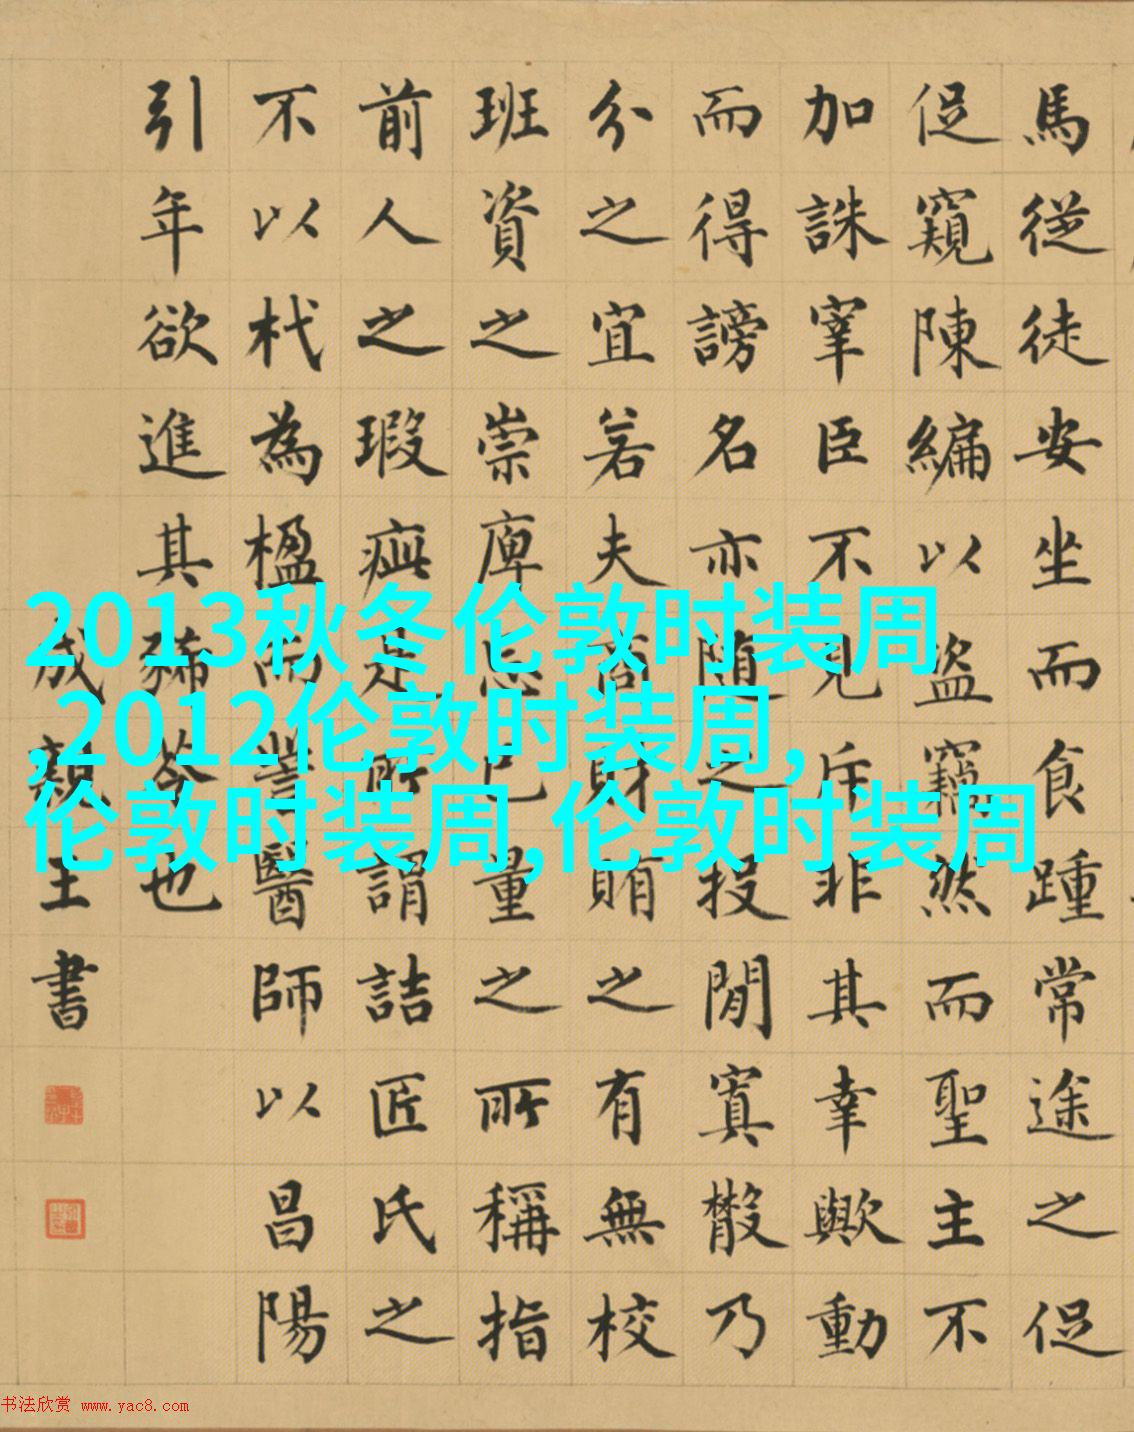 馬從徒安坐而食踵常途之促
促窺陳編以盜竊然而聖主不
加誅宰臣不見斥非其幸歟動
而得謗名亦随之投閒寘散乃
分之宜若夫商財賄之有無校
班資之崇庳忘己量之所稱指
前人之瑕疵是所謂詰匠氏之
不以杙為楹而訾醫師以昌陽
引年欲進其豨苓也
成親王書
2013秋冬伦敦时装周
,2012伦敦时装周,
伦敦时装周,伦敦时装周
书法欣赏 www.yac8.com